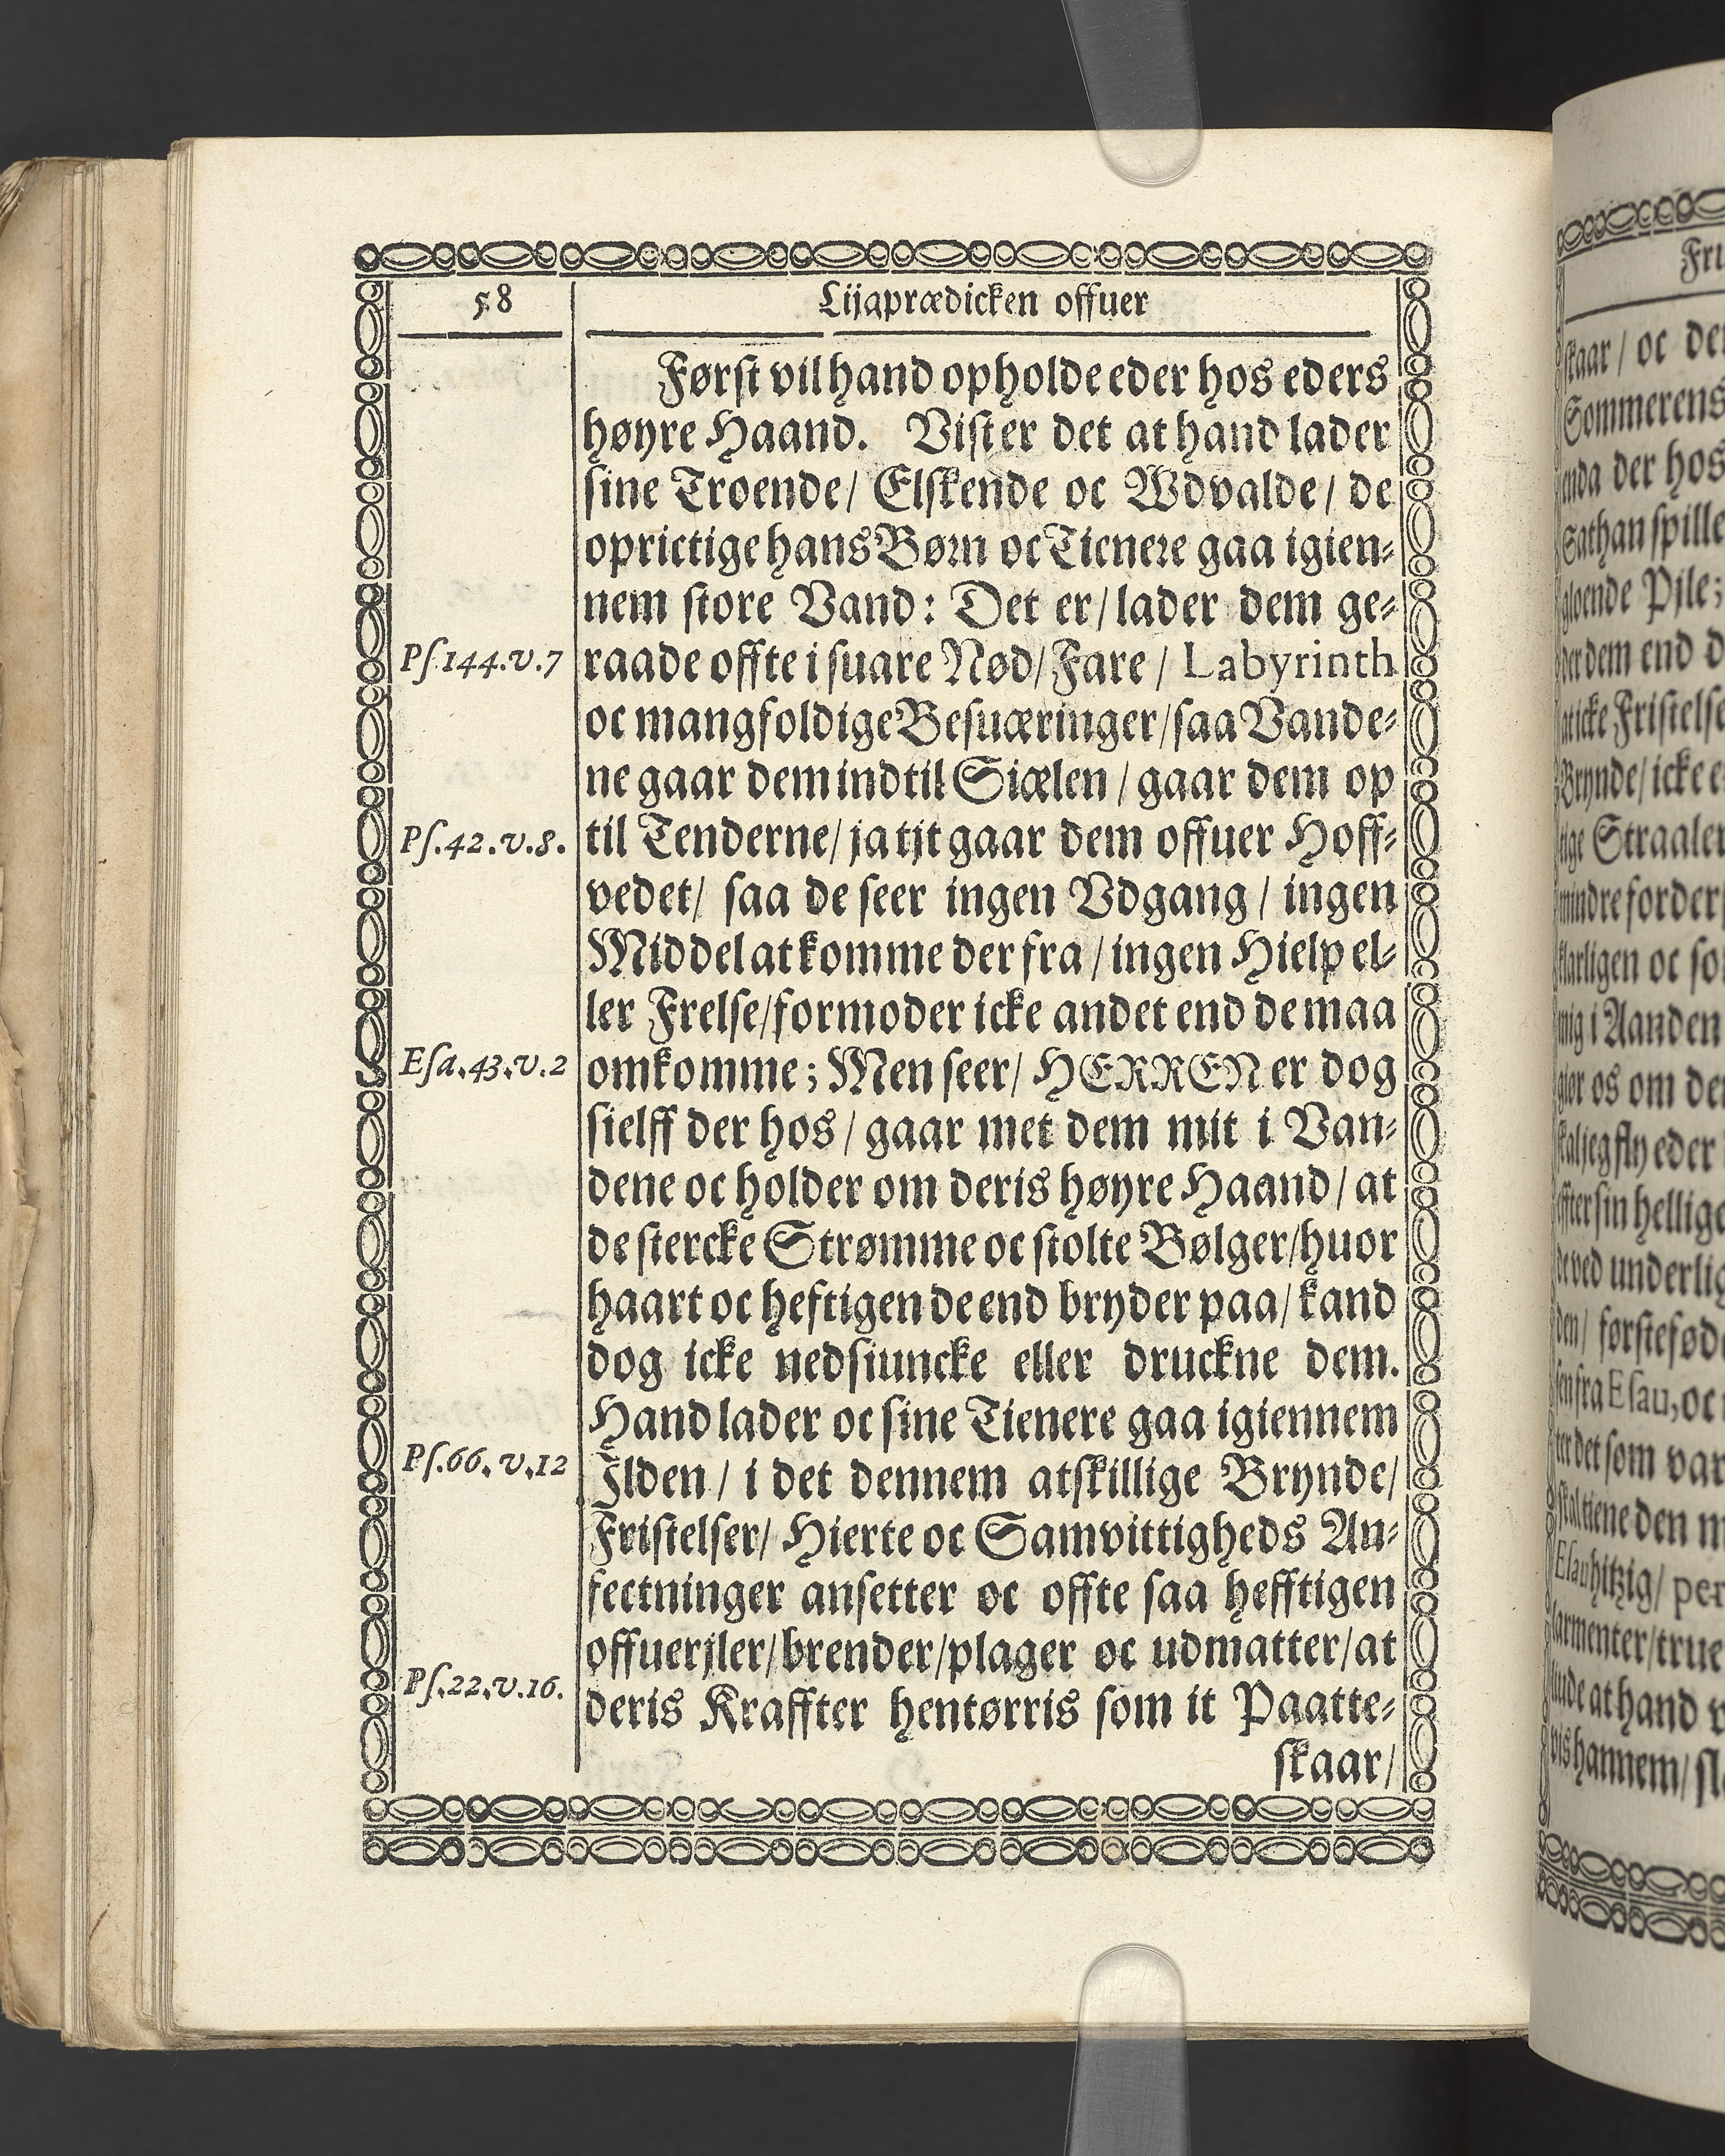 58
Lijgprædicken offuer
Først vil hand opholde eder hos eders
høyre Haand. Vist er det at hand lader
sine Troende/ Elskende oc Wdvalde/ de
oprictige hans Børn oc Tienere gaa igien-
nem store Vand: Det er/ lader dem ge-
Ps.144.v.7
raade offte i suare Nød/ Fare / Labyrinth
oc mangfoldige Besuæringer/ saa Vande-
ne gaar dem ind til Siælen / gaar dem op
Ps.42.v.8.
til Tenderne/ ja tjt gaar dem offuer Hoff-
vedet/ saa de seer ingen Vdgang / ingen
Middel at komme der fra / ingen Hielp el-
ler Frelse/ formoder icke andet end de maa
Esa.43.v.2
omkomme; Men seer/ HERREN er dog
sielff der hos / gaar met dem mit i Van-
dene oc holder om deris høyre Haand/ at
de stercke Strømme oc stolte Bølger/ huor
haart oc heftigen de end bryder paa/ kand
dog icke nedsiuncke eller druckne dem.
Hand lader oc sine Tienere gaa igiennem
Ps.66.v.12
Ilden / i det dennem atskillige Brynde/
Fristelser/ Hierte oc Samvittigheds An-
fectninger ansetter oc offte saa hefftigen
offuerjler/ brender/ plager oc udmatter/ at
Ps.22.v.16.
deris Kraffter hentørris som it Paatte-
skaar/
Fru
skaar / oc den
Sommerens
enda der hos
Sathan spille
gloende Pile;
der dem end d
Brynde/ icke e
tige Straaler
mindre forder
klarligen oc so
mig i Aanden
giør os om den
skal jeg fly eder
effter sin hellige
de ved underlig
den/ førstefødd
sen fra Esau, oc
ter det som var
skal tiene den m
Esau hitzig/ per
larmenter/ true
lude at hand v
vis hannem/ sl